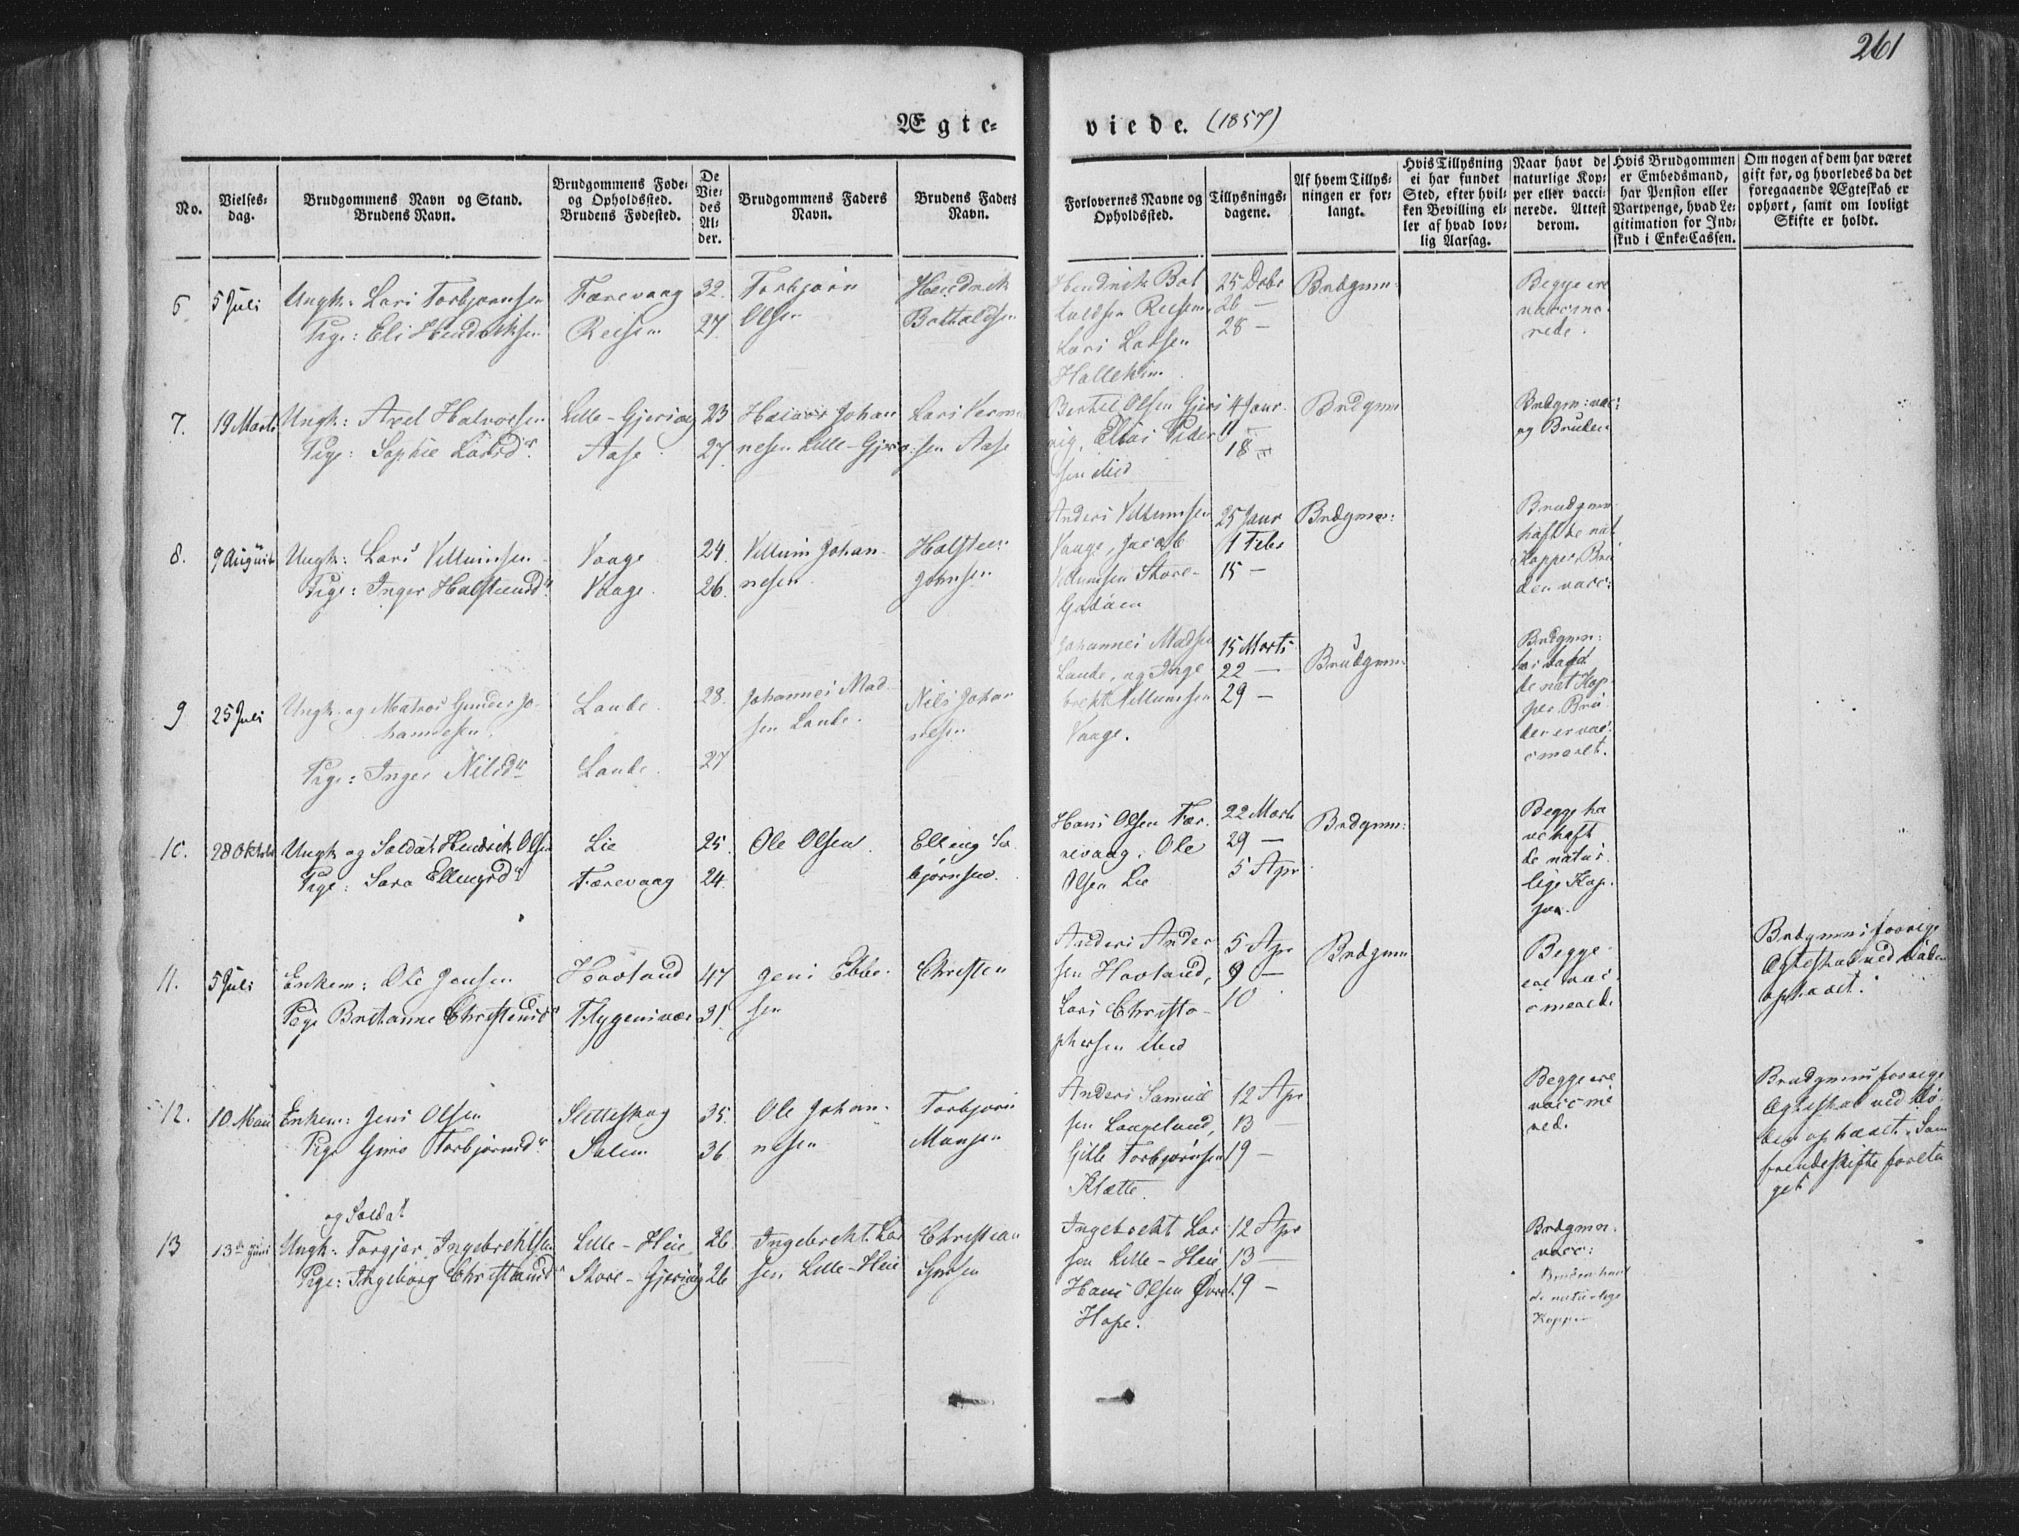 261
Ægte-
viede. (1857)
No.
Vielses-
dag.
Brudgommens Navn og Stand.
Brudens Navn.
Brudgommens Føde-
og Opholdssted.
Brudens Fødested.
De
Vie-
des
Al-
der.
Brudgommens Faders
Navn.
Brudens Faders
Navn.
Forlovernes Navne og
Opholdssted.
Tillysnings-
dagene.
Af hvem Tillys-
ningen er for-
langt.
Hvis Tillysning
ei har fundet
Sted, efter hvil-
ken Bevilling el-
ler af hvad lov-
lig Aarsag.
Naar havt de
naturlige Kop-
per eller vacci-
nerede. Attest
derom.
Hvis Brudgommen
er Embedsmand,
har Pension eller
Vartpenge, hvad Le-
gitimation for Ind-
skud i Enke-Cassen.
Om nogen af dem har været
gift før, og hvorledes da det
foregaaende Ægteskab er
ophørt, samt om lovligt
Skifte er holdt.
6
5 Juli
Ungk: Lars Torbjørnsen
Pige: Eli
Færevaag
Reisen
32.
27.
Torbjørn
Olsen
Hendrik
Botholdsen
Hendrik Bot
Reisen
Lars Larsen
25 Debr
26 —
28 —
Brdgmn:
Begge ere
vaccine-
rede.
7.
19 Marts
Ungk: Axel Halvorsen
Pige: Sophie Larsd.
Lille-Gjervig
Aase
23
27.
Halvor Johan
nesen Lille-Gjervig
Lars
sen Aase
Berthel Olsen Gjer
vig, Elias Peder
sen ibid
4 Jaur.
11 —
18 —
Brdgmn
Brdgm: vac:
og Bruden
8.
9 August
Ungk: Lars Villumsen
Pige: Inger Halsteensdr
Vaage
Vaage.
24
26.
Villum Johan-
nesen
Halsteen
Johnsen
Anders Villumsen
Vaage, Jacob
Villumsen Store-
25 Jaur
1 Febr
15 —
Brdgmn:
Brudgmn
haft de nat
Kopper, Bru
den vacc:
9
25 Juli
Ungk. og Matros Gunder Jo-
hannesen.
Pige: Inger Nilsdr
Lande.
Lande.
28.
27
Johannes Mad-
sen Lande.
Nils Johan
nesen
Johannes Madsen
Lande, og Inge
brekt Villumsen
Vaage.
15 Marts
22 —
29 —
Brudgmn
Brdgmn:
de nat Kop-
per. Bru
den er vac
cineret.
10.
28 Oktober
Ungk og Soldat Hendrik Olsen
Pige: Sara Ellingsdr
Lie
Færevaag
25.
24.
Ole Olsen.
Elling To
bjørnsen.
Hans Olsen Fær-
revaag. Ole
Olsen Lie
22 Marts
29 —
5 Apr
Brdgmn:
Begge ha
ve haft
de natur
lige Kop-
per.
11.
5 Juli
Enkem: Ole Jensen
Pige Bertanne Christensdr
Hovland
Flygensvær
47
31.
Jens Ebbe-
sen
Christen
Anders Ander
sen Hovland,
Lars Christo-
phersen ibid
5 Apr
9 —
10
Brdgmn
Begge
ere vac
cinerede
Brdgmns forrige
Ægteskab ved Døden
ophævet.
12.
10 Mai
Enkem: Jens Olsen
Pige Torbjørnsdr
Sletteskog
Salem
35.
36
Ole Johan-
nesen
Torbjørn
Monsen
Anders Samuel
sen Langeland,
Gitle Torbjørnsen
Klætte.
12 Apr
13 —
19 —
Begge ere
vaccine
red.
Brudgmns forrige
Ægteskab ved Dø-
den ophævet. Sam
frendeskifte foreta
get
13
13de Juni
og Soldat
Ungk: Torgjer Ingebrektsen
Pige: Ingeborg Christiansdr
Lille-Heie
Store-Gjervig
26.
26
Ingebrekt Lar
sen Lille-Heie
Christian
Ingebrekt Lar
sen Lille-Heie
Hans Olsen Øvre
Hope.
12 Apr
13 —
19 —
Brdgmn.
vacc:
Bruden havt
de naturlige
Kopper